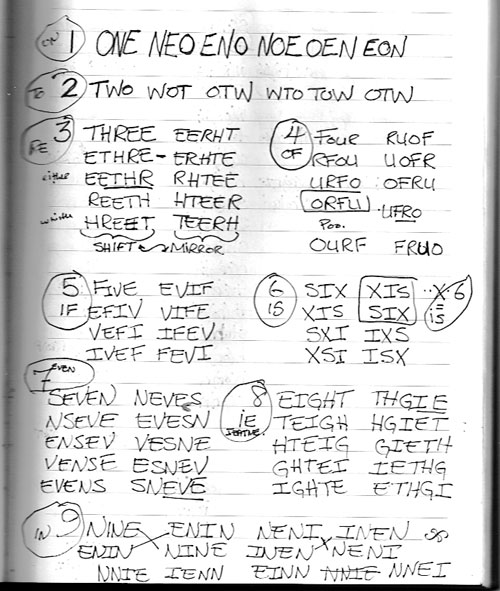 ON 1 ONE NEO ENO NOE OEN EON
TO 2 TWO WOT OTW WTO TOW OTW
RE 3 THREE EERHT
ETHRE - ERHTE
either EETHR RHTEE
REETH HTEER
HREET TEERH
SHIFT MIRROR
4 OF FOUR RUOF
RFOU UOFR
URFO OFRU
ORFU UFRO
OURF FRUO
5 IF FIVE EVIF
EFIV VIFE
VEFI IFEV
IVEF FEVI
6 IS SIX XIS X=6
XIS SIX is
SXI IXS
XSI ISX
7 EVEN
SEVEN NEVES
NSEVE EVESN
ENSEV VESNE
VENSE ESNEV
EVENS SNEVE
8 IE EIGHT THGIE
TEIGH HGIET
HTEIG GIETH
GHTEI IETHG
IGHTE ETHGI
IN 9 NINE ENIN NENI INEN
ENIN NINE INEN NENI
NNIE IENN EINN NNIE NNEI